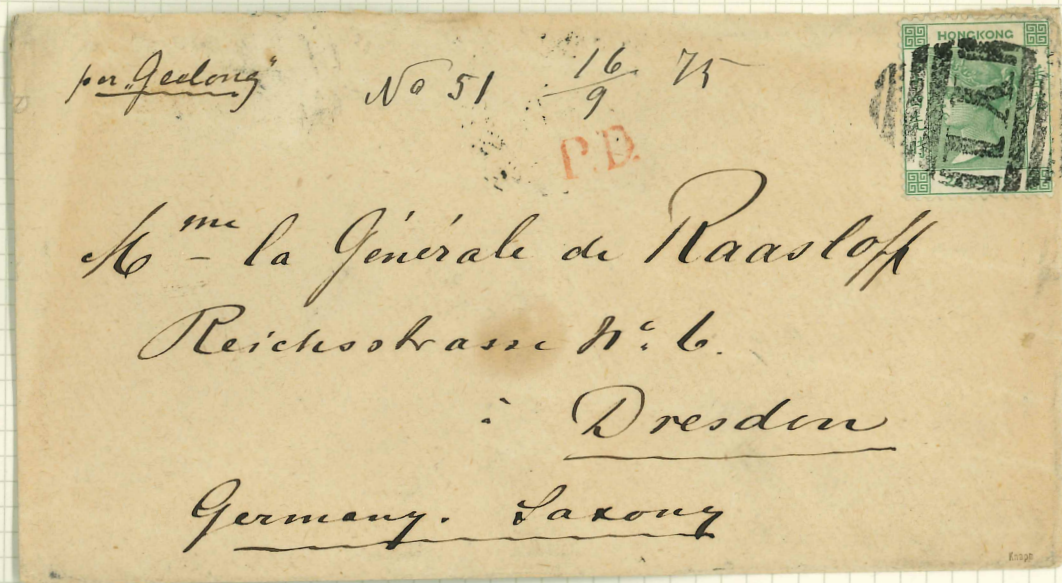 per „Geelong" No 51 16/9 75
HONGKONG
P.D.
Mme la Générale de Raasloff
Reichsstrasse No 6.
à Dresden
Germany. Saxony